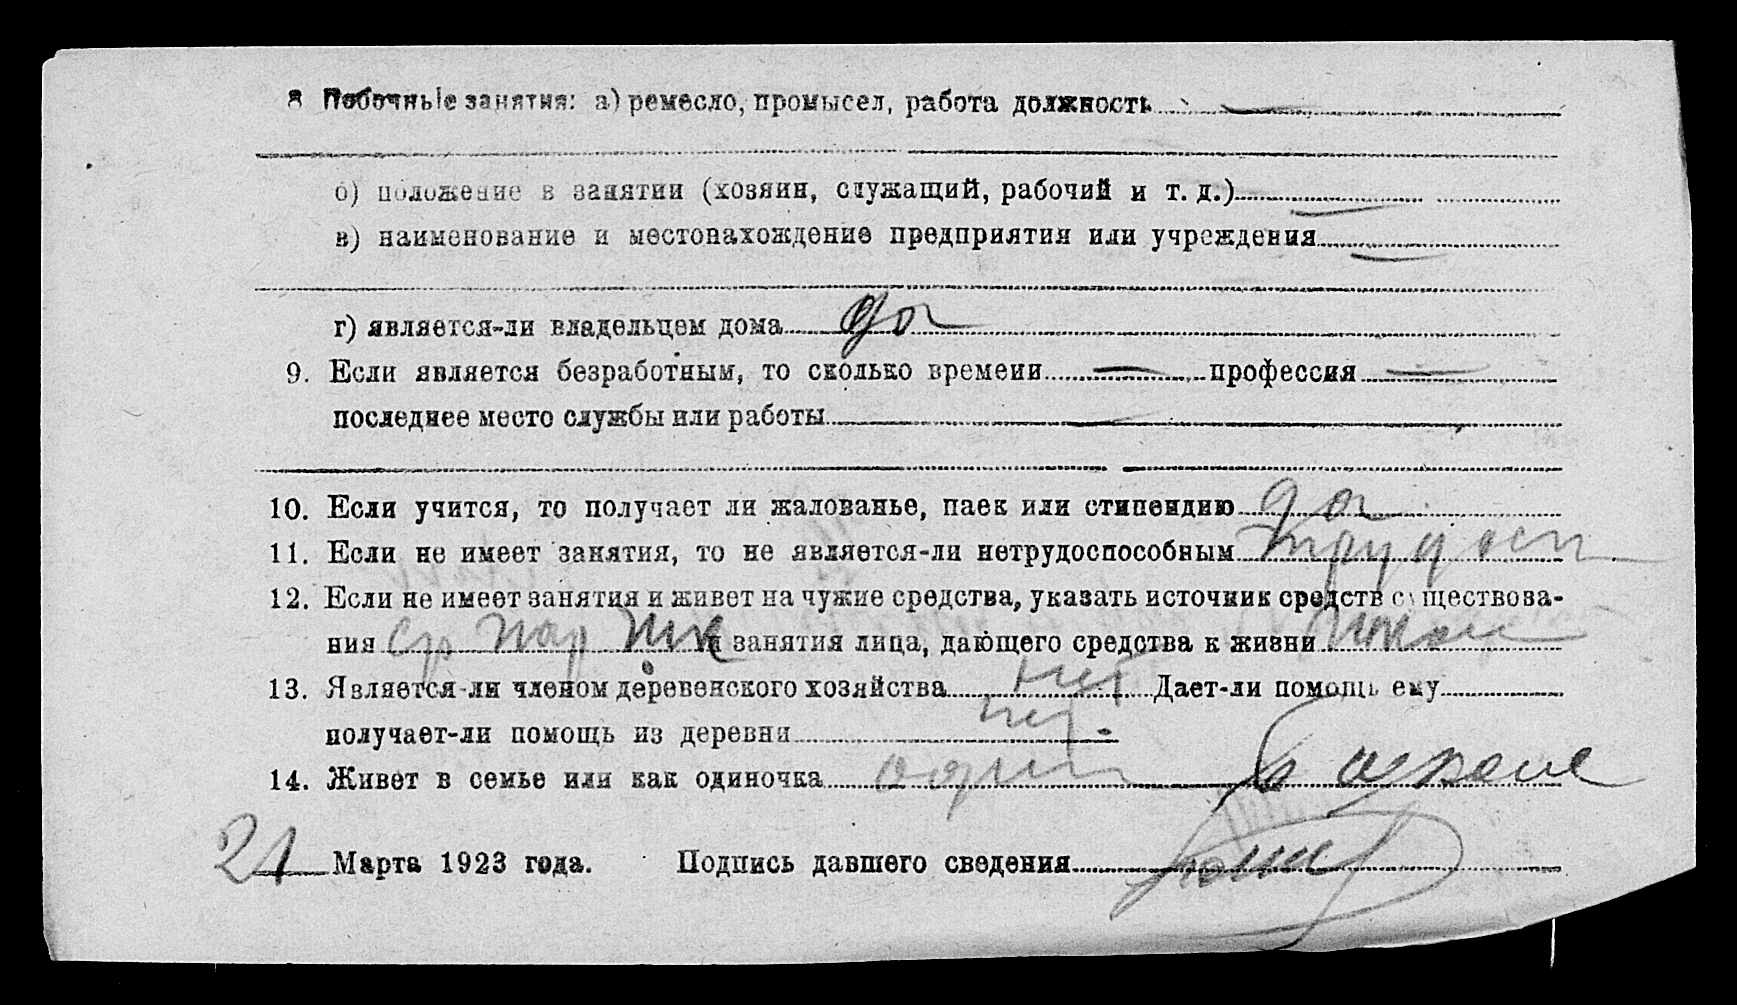 8 Побочные занятия: а) ремесло, промысел, работа должность —
б) положение в занятии (хозяин, служащий, рабочий и т. д.) —
в) наименование и местонахождение предприятия или учреждения —
г) является-ли владельцем дома да
9. Если является безработным, то сколько времени — профессия —
последнее место службы или работы —
10. Если учится, то получает ли жалованье, паек или стипендию да
11. Если не имеет занятия, то не является-ли нетрудоспособным трудосп
12. Если не имеет занятия и живет на чужие средства, указать источник средств существова-
ния и занятия лица, дающего средства к жизни
13. Является-ли членом деревенского хозяйства нет Дает-ли помощь ему
получает-ли помощь из деревни нет.
14. Живет в семье или как одиночка один
21 Марта 1923 года. Подпись давшего сведения